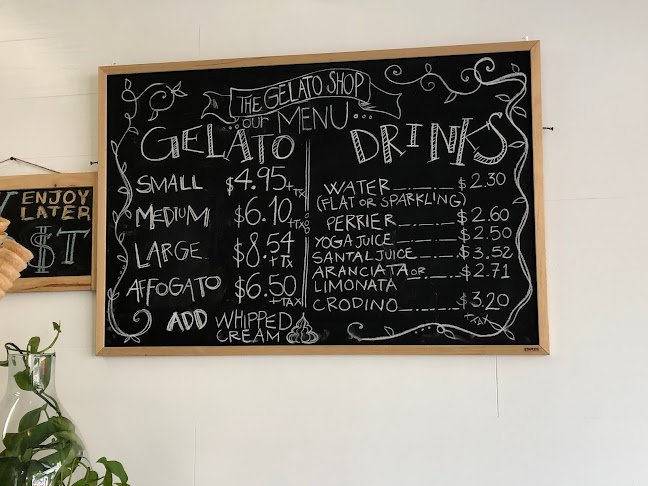 THE GELATO SHOP
...OUR MENU...
GELATO
SMALL $4.95 +TX
MEDIUM $6.10 +TX
LARGE $8.54 +TX
AFFOGATO $6.50 +TAX
ADD WHIPPED CREAM
DRINKS
WATER $2.30
(FLAT OR SPARKLING)
PERRIER $2.60
YOGA JUICE $2.50
SANTAL JUICE $3.52
ARANCIATA OR $2.71
LIMONATA
CRODINO $3.20
+TAX
ENJOY
LATER
$T